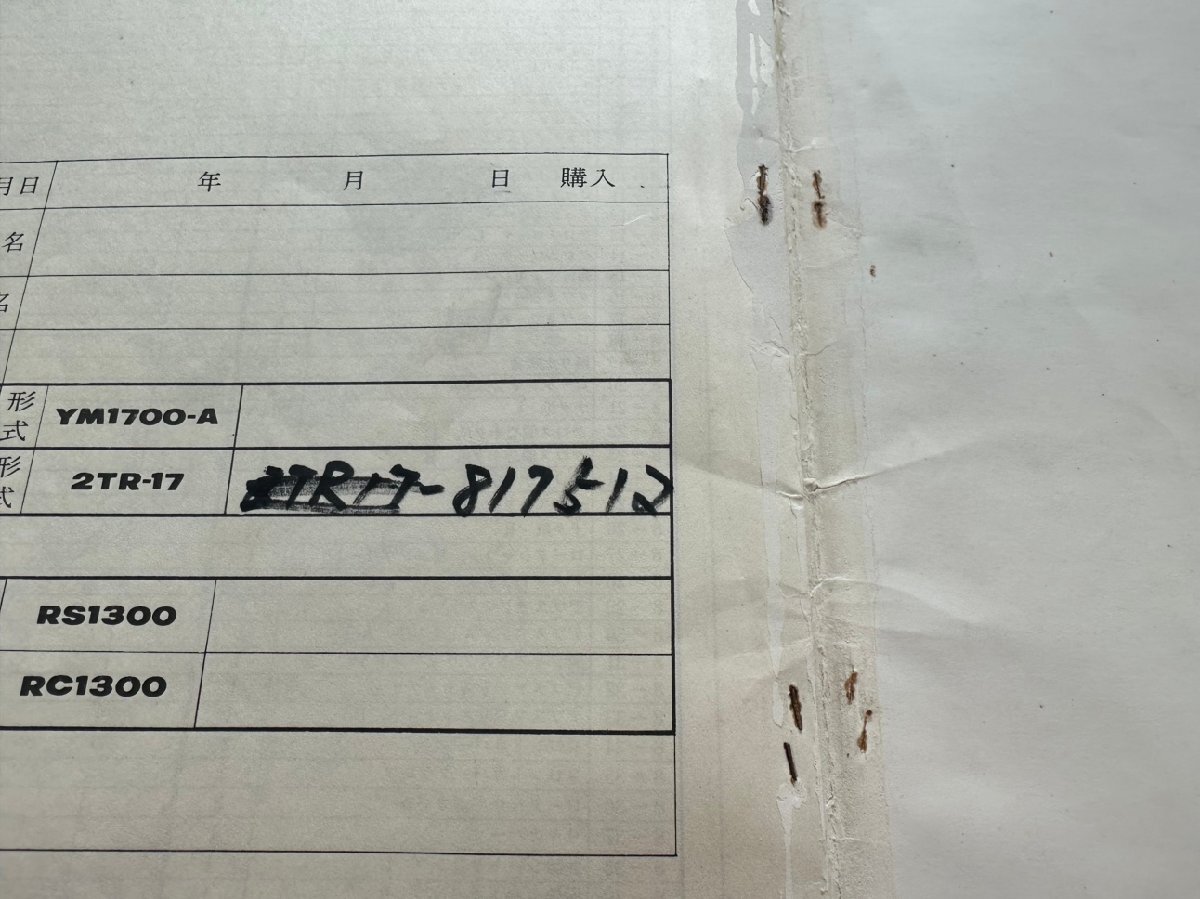 月日 年 月 日 購入
名
名
形式 YM1700-A
形式 2TR-17 2TR17-817512
RS1300
RC1300